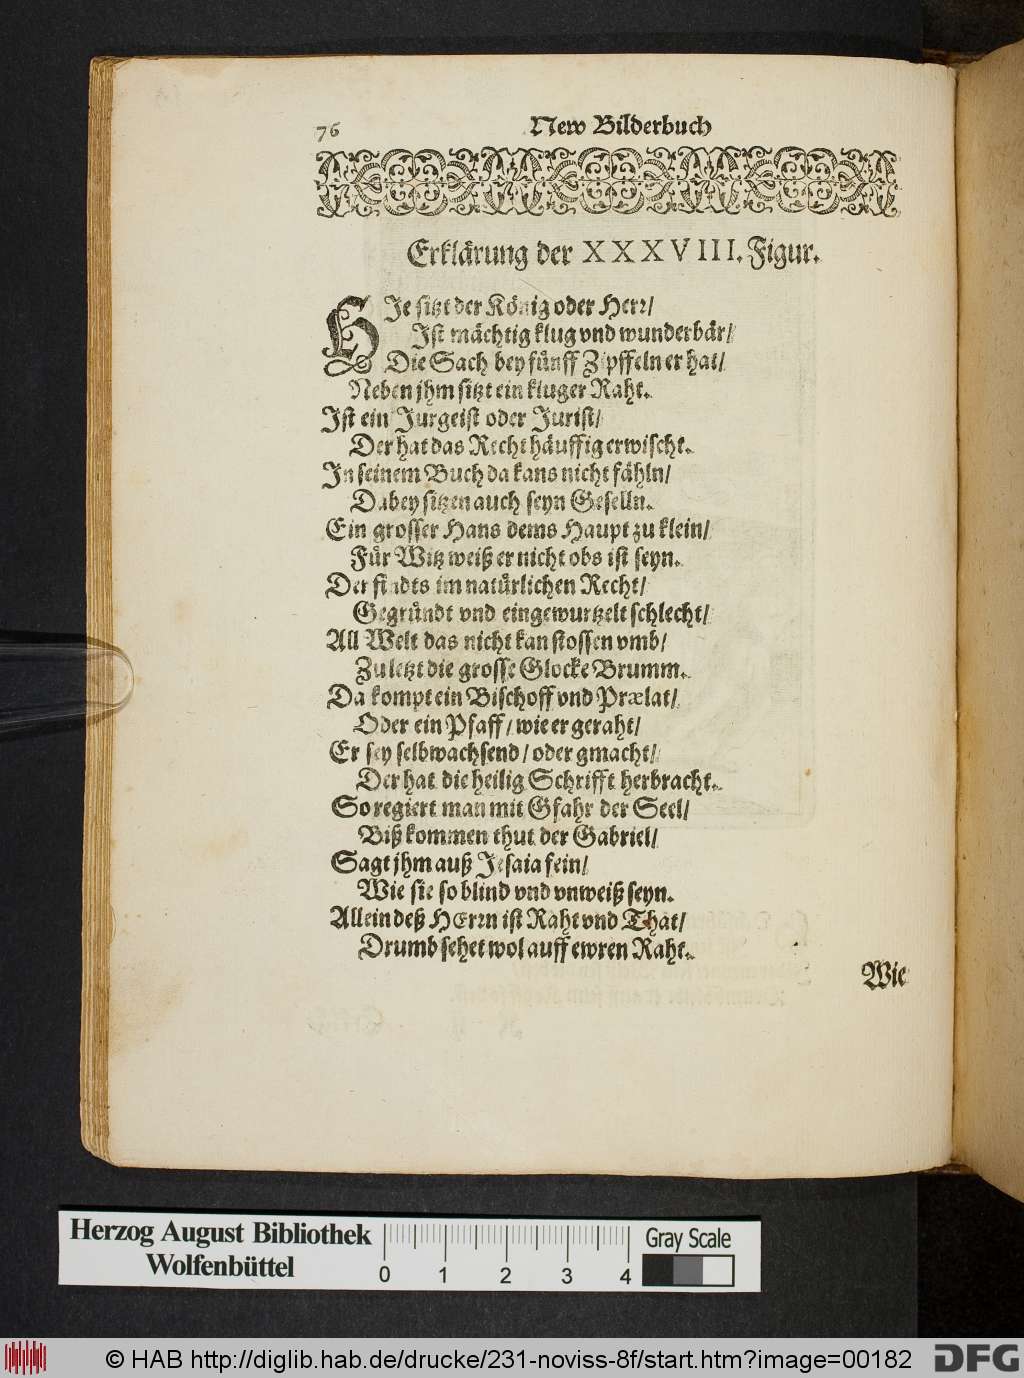 76
New Bilderbuch
Erklärung der XXXVIII. Figur.
HJe sitzt der König oder Herr/
Jst mächtig klug vnd wunderbär/
Die Sach bey fünff Zipffeln er hat/
Neben jhm sitzt ein kluger Raht.
Jst ein Jurgeist oder Jurist/
Der hat das Recht häuffig erwischt.
Jn seinem Buch da kans nicht fähln/
Dabey sitzen auch seyn Geselln.
Ein grosser Hans dems Haupt zu klein/
Für Witz weiß er nicht obs ist seyn.
Der stadts im natürlichen Recht/
Gegründt vnd eingewurtzelt schlecht/
All Welt das nicht kan stossen vmb/
Zu letzt die grosse Glocke Brumm.
Da kompt ein Bischoff vnd Prælat/
Oder ein Pfaff/ wie er geraht/
Er sey selbwachsend/ oder gmacht/
Der hat die heilig Schrifft herbracht.
So regiert man mit Gfahr der Seel/
Biß kommen thut der Gabriel/
Sagt jhm auß Jesaia fein/
Wie sie so blind vnd vnweiß seyn.
Allein deß HErrn ist Raht vnd That/
Drumb sehet wol auff ewren Raht.
Wie
Herzog August Bibliothek
Wolfenbüttel
0 1 2 3 4
Gray Scale
© HAB http://diglib.hab.de/drucke/231-noviss-8f/start.htm?image=00182
DFG